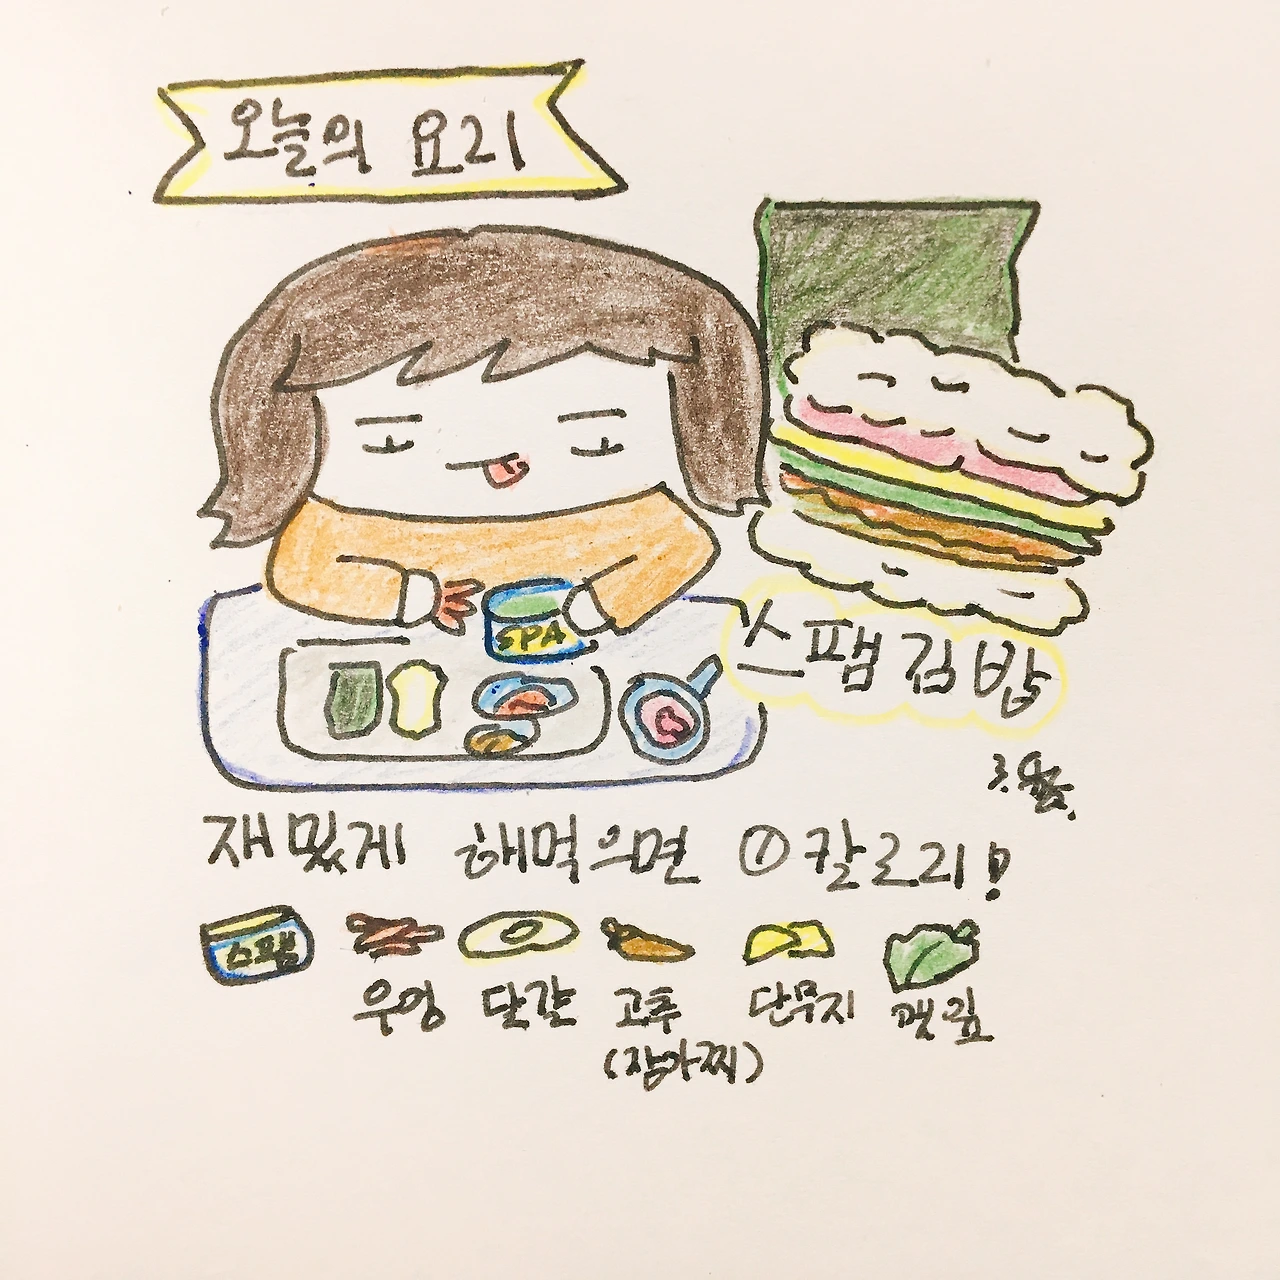 오늘의 요리
SPA
스팸김밥
재밌게 해먹으면 0칼로리!
스팸
우엉 달걀 고추 단무지 깻잎
(장아찌)